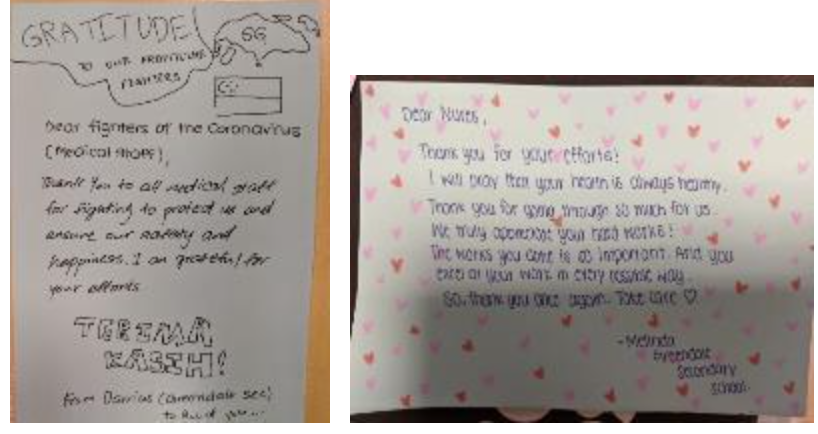 GRATITUDE!
TO OUR FRONTLINE
FIGHTERS
SG
Dear fighters of the Coronavirus
(Medical Staff),
Thank you to all medical staff
for fighting to protect us and
ensure our safety and
happiness. I am grateful for
your efforts
TERIMA
KASIH!
From Darrius (Greendale sec)
to all of you...
Dear Nurses,
Thank you for your efforts!
I will pray that your health is always healthy.
Thank you for going through so much for us.
We truly appreciate your hard works!
The works you done is as important. And you
excel at your work in every possible way.
So, thank you once again. Take care ♡
- Melinda
Greendale
Secondary
School.